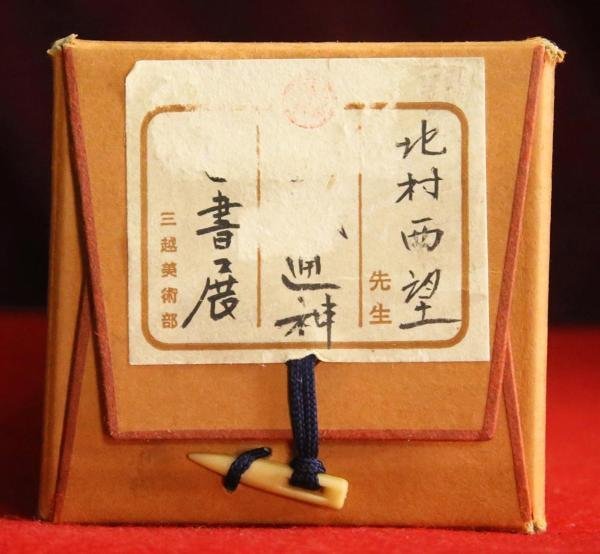 北村西望
先生
神
書展
三越美術部